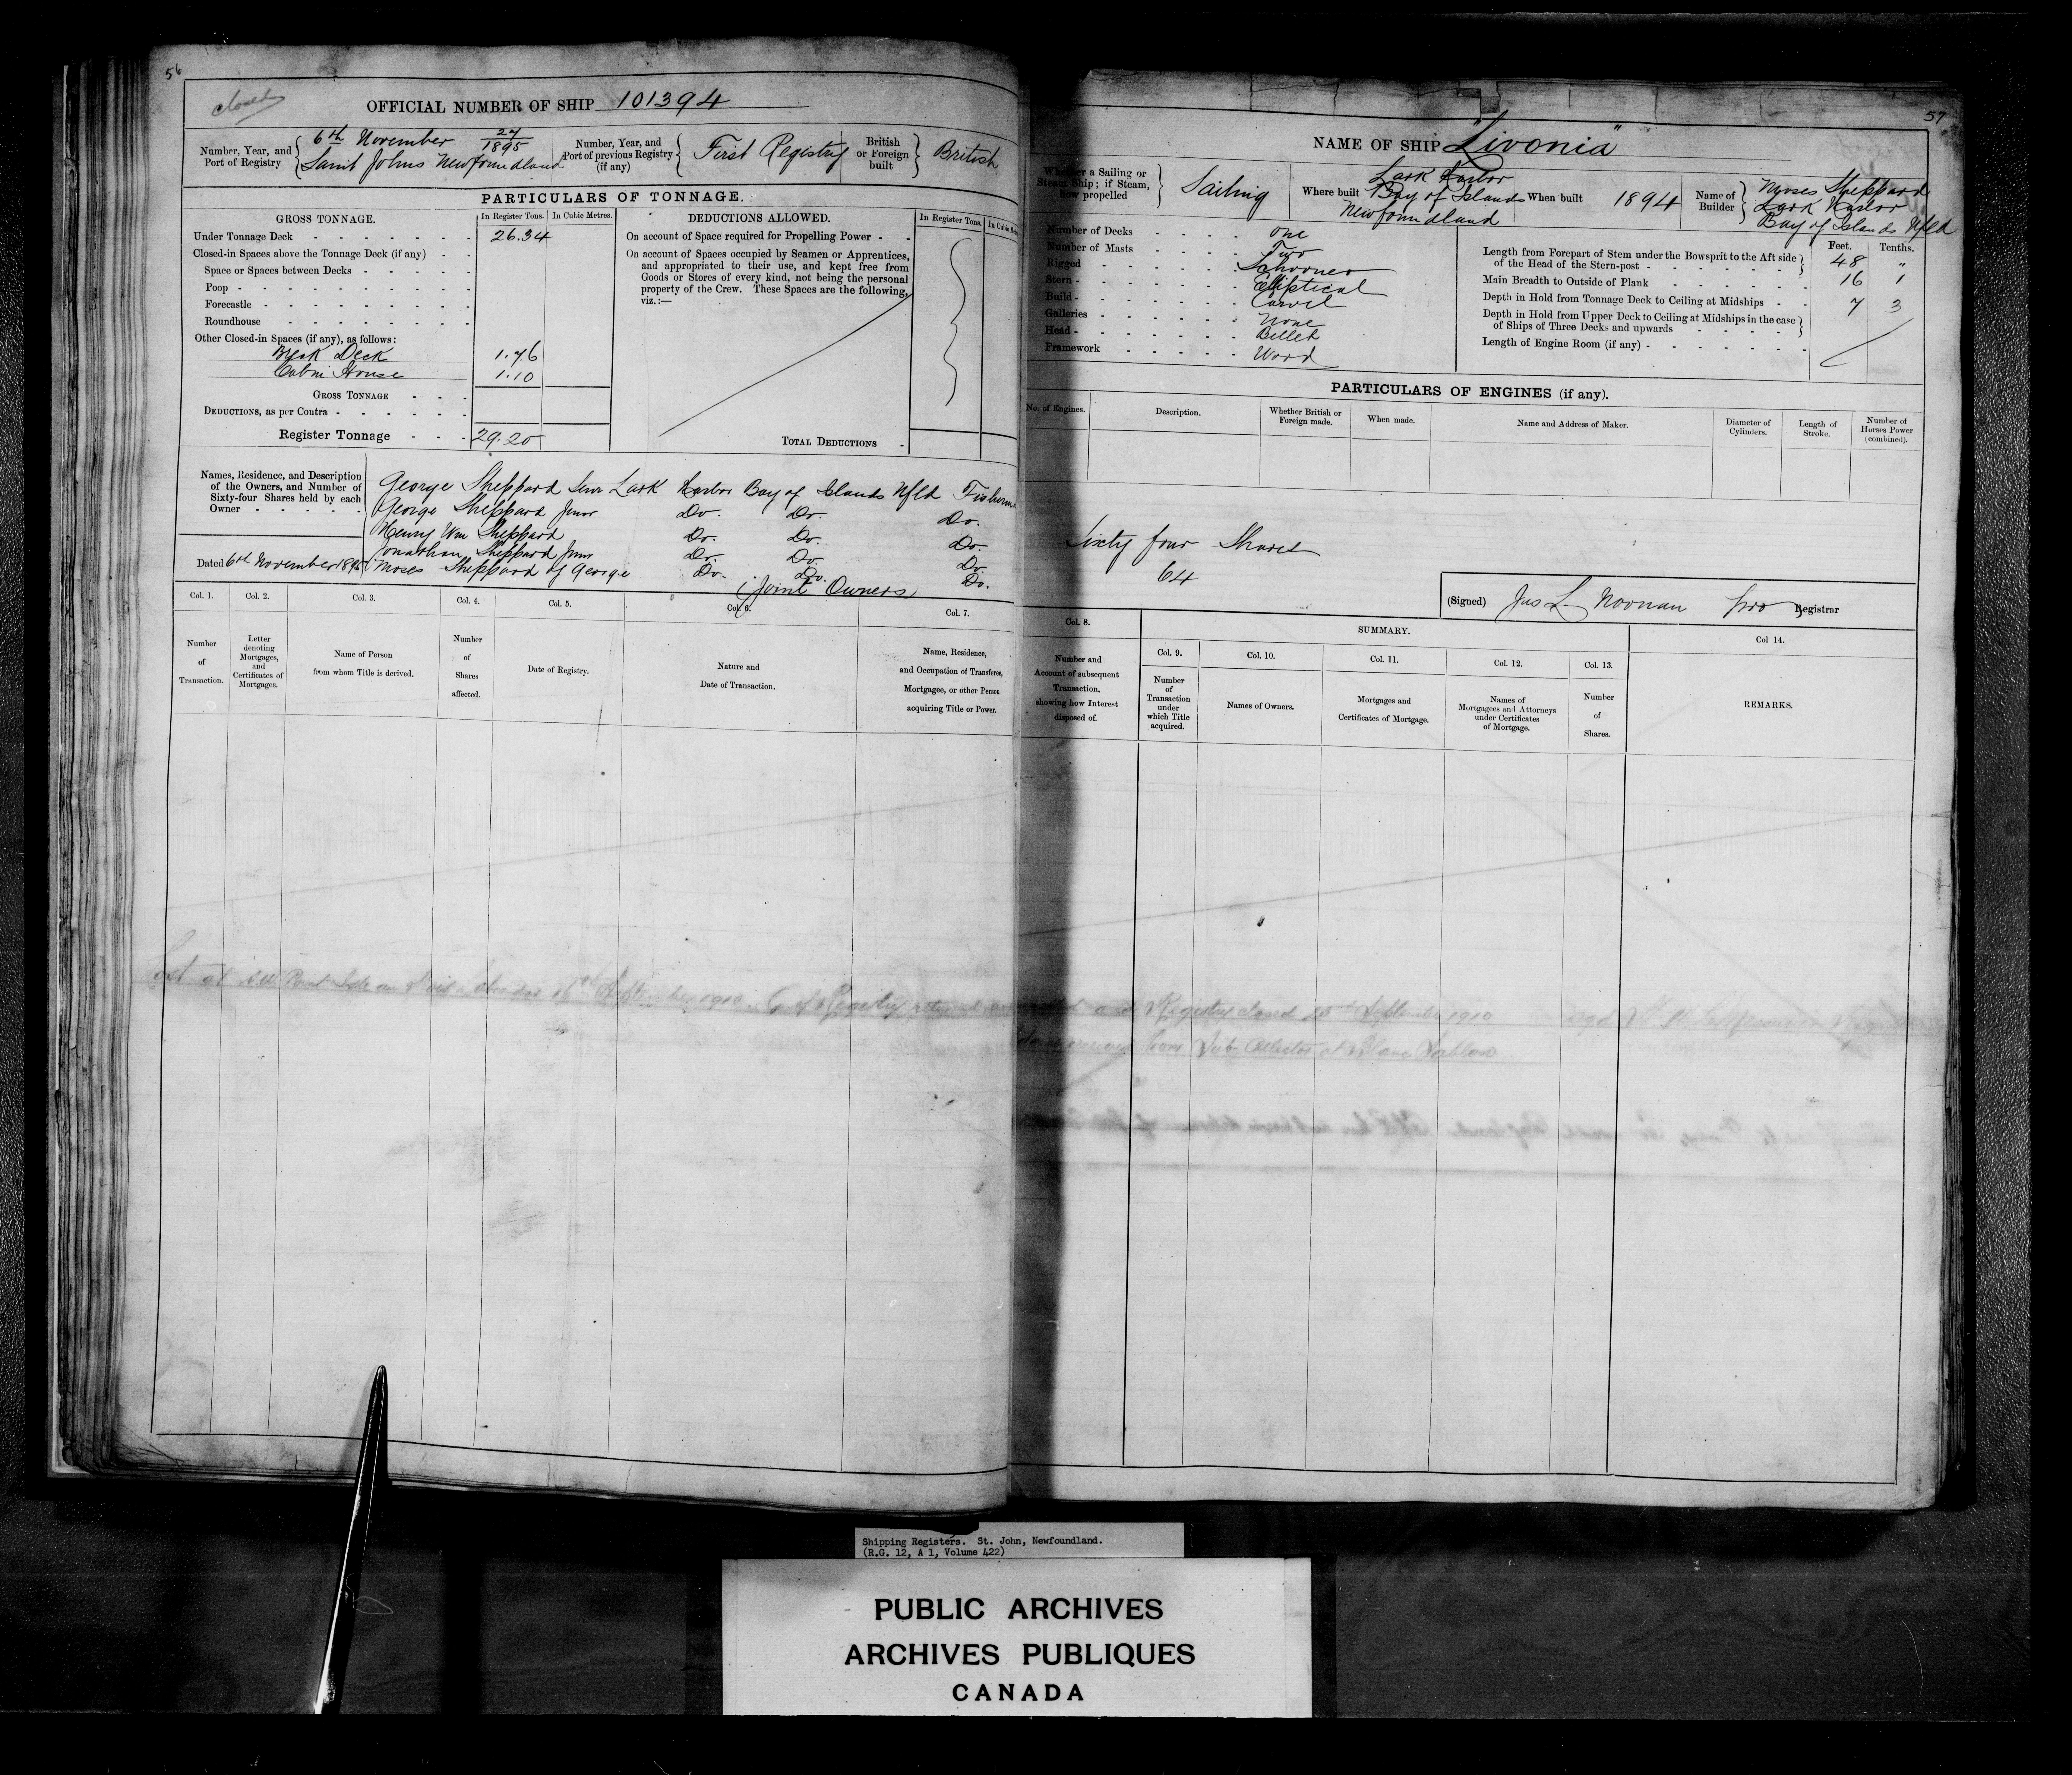 56
closed
OFFICIAL NUMBER OF SHIP 101394
Number, Year, and Port of Registry { 6th November 27/1895
Saint Johns Newfoundland
Number, Year, and Port of previous Registry (if any) { First Registry
British or Foreign built } British
PARTICULARS OF TONNAGE.
GROSS TONNAGE. In Register Tons. In Cubic Metres.
Under Tonnage Deck - - - - - - - 26.34
Closed-in Spaces above the Tonnage Deck (if any) - -
Space or Spaces between Decks - - - - -
Poop - - - - - - - - - -
Forecastle - - - - - - - - -
Roundhouse - - - - - - - -
Other Closed-in Spaces (if any), as follows:
Break Deck 1.76
Cabin House 1.10
GROSS TONNAGE - - -
DEDUCTIONS, as per Contra - - - - - -
Register Tonnage - - - 29.20
DEDUCTIONS ALLOWED. In Register Tons.
On account of Space required for Propelling Power - -
On account of Spaces occupied by Seamen or Apprentices,
and appropriated to their use, and kept free from
Goods or Stores of every kind, not being the personal
property of the Crew. These Spaces are the following,
viz.:—
TOTAL DEDUCTIONS -
Names, Residence, and Description
of the Owners, and Number of
Sixty-four Shares held by each
Owner - - - - -
George Sheppard Senr Lark Harbor Bay of Islands Nfld Fisherman
George Sheppard Junr Do. Do. Do.
Henry Wm Sheppard Do. Do. Do.
Jonathan Sheppard Junr Do. Do. Do.
Moses Sheppard of George Do. Do. Do.
Dated 6th November 1895
(Joint Owners)
Col. 1. Col. 2. Col. 3. Col. 4. Col. 5. Col. 6. Col. 7.
Number of Transaction.
Letter denoting Mortgages, and Certificates of Mortgages.
Name of Person from whom Title is derived.
Number of Shares affected.
Date of Registry.
Nature and Date of Transaction.
Name, Residence, and Occupation of Transferee, Mortgagee, or other Person acquiring Title or Power.
57
NAME OF SHIP "Livonia"
Whether a Sailing or Steam Ship; if Steam, how propelled } Sailing
Where built Lark Harbor
Bay of Islands
Newfoundland
When built 1894
Name of Builder } Moses Sheppard
Lark Harbor
Bay of Islands Nfld
Number of Decks - - - - One
Number of Masts - - - - Two
Rigged - - - - - - Schooner
Stern - - - - - - - Elliptical
Build - - - - - - - Carvel
Galleries - - - - - - None
Head - - - - - - - Billet
Framework - - - - - Wood
Feet. Tenths.
Length from Forepart of Stem under the Bowsprit to the Aft side
of the Head of the Stern-post - - - - - - - 48 "
Main Breadth to Outside of Plank - - - - - 16 1
Depth in Hold from Tonnage Deck to Ceiling at Midships - - 7 3
Depth in Hold from Upper Deck to Ceiling at Midships in the case
of Ships of Three Decks and upwards - - - - -
Length of Engine Room (if any) - - - - - - -
PARTICULARS OF ENGINES (if any).
No. of Engines. Description. Whether British or Foreign made. When made. Name and Address of Maker. Diameter of Cylinders. Length of Stroke. Number of Horses Power (combined).
Sixty four Shares
64
(Signed) Jas L Noonan pro Registrar
Col. 8. SUMMARY. Col 14.
Col. 9. Col. 10. Col. 11. Col. 12. Col. 13.
Number and Account of subsequent Transaction, showing how Interest disposed of.
Number of Transaction under which Title acquired.
Names of Owners.
Mortgages and Certificates of Mortgage.
Names of Mortgagees and Attorneys under Certificates of Mortgage.
Number of Shares.
REMARKS.
Lost at Point 16th September 1910. C of Registry and Registry closed September 1910
from Sub Collector at Blanc Sablon
Shipping Registers. St. John, Newfoundland.
(R.G. 12, A 1, Volume 422)
PUBLIC ARCHIVES
ARCHIVES PUBLIQUES
CANADA